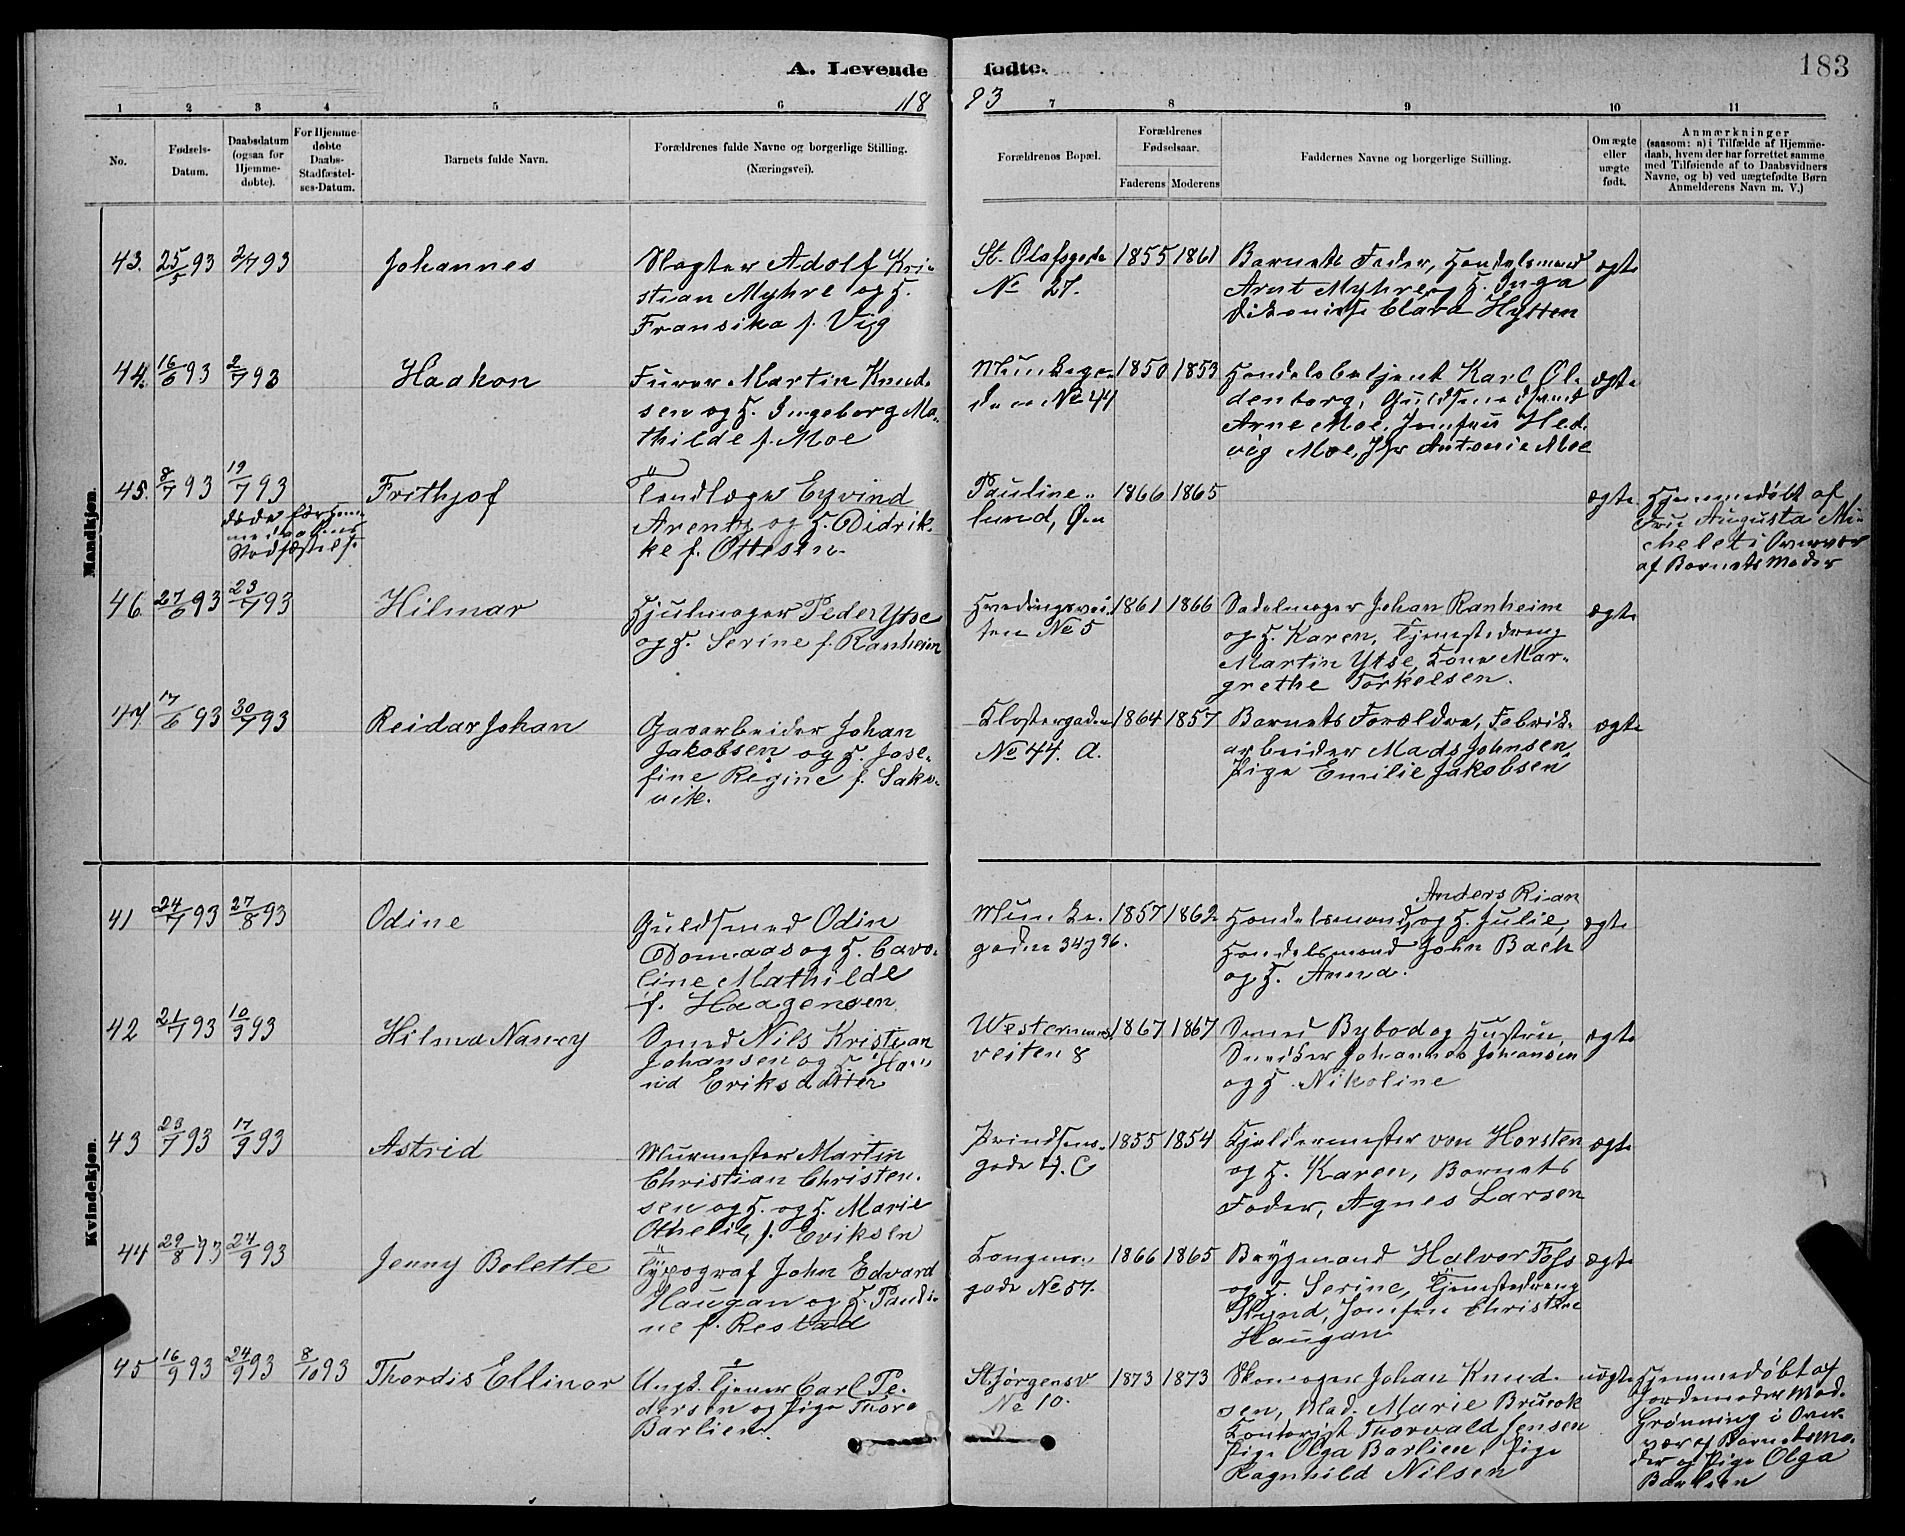 183
A. Levende fødte.
1893
1 2 3 4 5 6 7 8 9 10 11
No.
Fødsels-Datum.
Daabsdatum (ogsaa for Hjemme-døbte).
For Hjemme-døbte Daabs-Stadfæstel-ses-Datum.
Barnets fulde Navn.
Forældrenes fulde Navne og borgerlige Stilling.
(Næringsvei).
Forældrenes Bopæl.
Forældrenes Fødselsaar.
Faderens Moderens
Faddernes Navne og borgerlige Stilling.
Om ægte eller uægte født.
Anmærkninger
(saasom: a) i Tilfælde af Hjemme-
daab, hvem der har forrettet samme
med Tilføiende af to Daabsvidners
Navne, og b) ved uægtefødte Børn
Anmelderens Navn m. V.)
Mandkjøn.
43. 25/5 93 2/7 93 Johannes
Slagter Adolf Kri-
stian Myhre og H.
Fransika f. Vig
St. Olafsgade
No 27.
1855 1861
Barnets Fader, Handelsmand
Arnt Myhre og H. Inga
Dikonisse Clara Hytten
ægte
44. 16/6 93 2/7 93 Haakon
Furer Martin Knud-
sen og H. Ingeborg Ma-
thilde f. Moe
Munkega-
den No 44
1850 1853
Handelsbetjent Karl Ol-
denborg, Guldsmedsvend
Arne Moe, Jomfru Hed-
vig Moe, Jfr Antonie Moe
ægte
45. 8/7 93 19/7 93 Frithjof
døde før hjem-
medaabens
Stadfæstelse
Tandlæge Eyvind
Arentz og H. Didrik-
ke f. Ottesen
Pauline-
lund, Øen
1866 1865
ægte
Hjemmedøbt af
Fru Augusta Mi-
chelet i Overvær
af Barnets Moder
46. 27/6 93 23/7 93 Hilmar
Hjulmager Peder Ytse
og H. Serine f. Ranheim
Hvedingsvei-
ten No 5
1861 1866
Sadelmager Johan Ranheim
og H. Karen, Tjenestedreng
Martin Ytse, Kone Mar-
grethe Torkelsen.
ægte
47 17/6 93 30/7 93 Reidar Johan
Gasarbeider Johan
Jakobsen og H. Jose-
fine Regine f. Saks-
vik.
Klostergaden
No 44. A.
1864 1857
Barnets Forældre, Fabrik-
arbeider Mads Johnsen,
Pige Emilie Jakobsen
ægte
Kvindekjøn.
41 24/7 93 27/8 93 Odine
Guldsmed Odin
Domaas og H. Caro-
line Mathilde
f. Haagensen
Munke-
gaden 34 & 36.
1857 1862
Anders Rian
Handelsmand og H. Julie,
Handelsmand John Bach
og H. Anna.
ægte
42 21/7 93 10/9 93 Hilma Nancy
Smed Nils Kristian
Johansen og H. Han-
na Eriksdatter
Westermanns
veiten 8
1867 1867
Smed Bybod og Hustru,
Snedker Johannes Johansen
og H. Nikoline
ægte
43 23/7 93 17/9 93 Astrid
Murmester Martin
Christian Christen-
sen og H. og H. Marie
Othelie, f. Eriksen
Prindsens-
gade 4. C
1855 1854
Kjeldermester von Horsten
og H. Karen, Barnets
Fader, Agnes Larsen
ægte
44 29/8 93 24/9 93 Jenny Bolette
Typograf John Edvard
Haugan og H. Pauli-
ne f. Restad
Kongens-
gade No 57.
1866 1865
Brygmand Halvor Foss
og H. Serine, Tjenestedreng
Skjnd, Jomfru Christine
Haugan
ægte
45 16/9 93 24/9 93 8/10 93 Thordis Ellinor
Ungk. Tjener Carl Pe-
dersen og Pige Thora
Barlien.
St. Jørgensv
No 10.
1873 1873
Skomager Johan Knud-
sen, Mad. Marie Brurok
Kontorist Thorvald Jensen
Pige Olga Barlien, Pige
Ragnhild Nilsen
uægte
Hjemmedøbt af
Jordemoder Mad.
Grønning i Over-
vær af Barnets Mo-
der og Pige Olga
Barlien